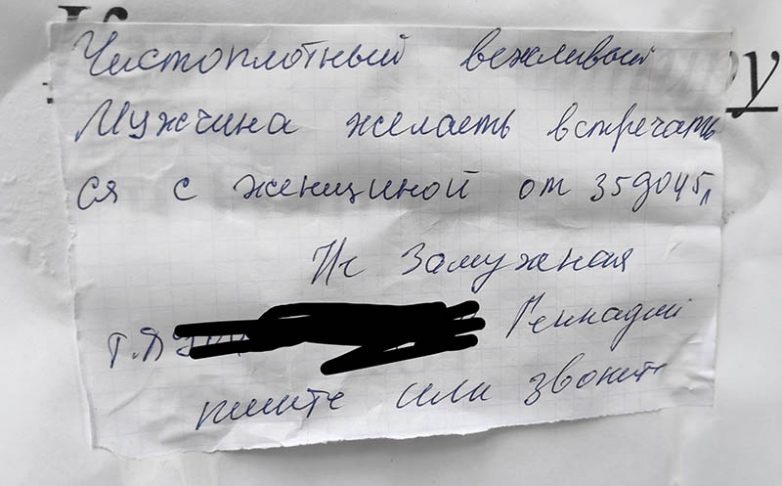 Чистоплотный вежливый
Мужчина желаеть встречать
ся с женщиной от 35 до 45 л
Не замужная
Геннадий
пишите или звоните